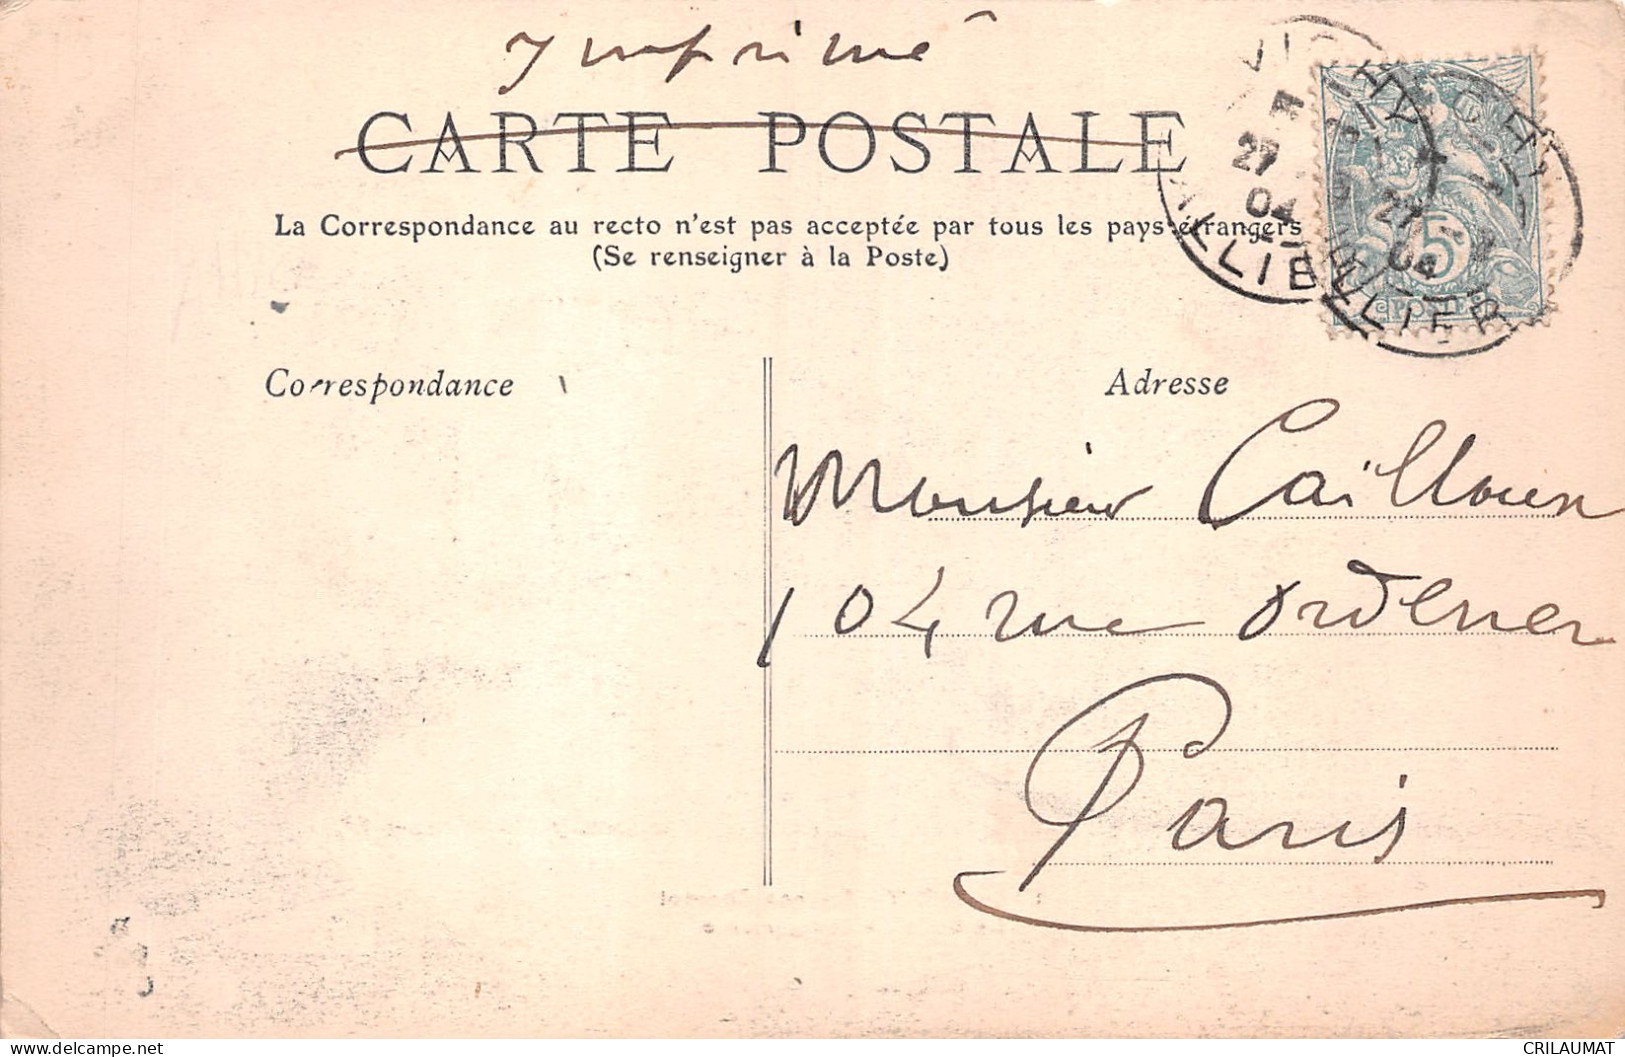 Imprimé
CARTE POSTALE
La Correspondance au recto n'est pas acceptée par tous les pays étrangers
(Se renseigner à la Poste)
VICHY
27
04
ALLIER
27
04
ALLIER
5
POSTE
Correspondance
Adresse
Monsieur Cailloux
104 rue Ordener
Paris
delcampe.net
CRILAUMAT